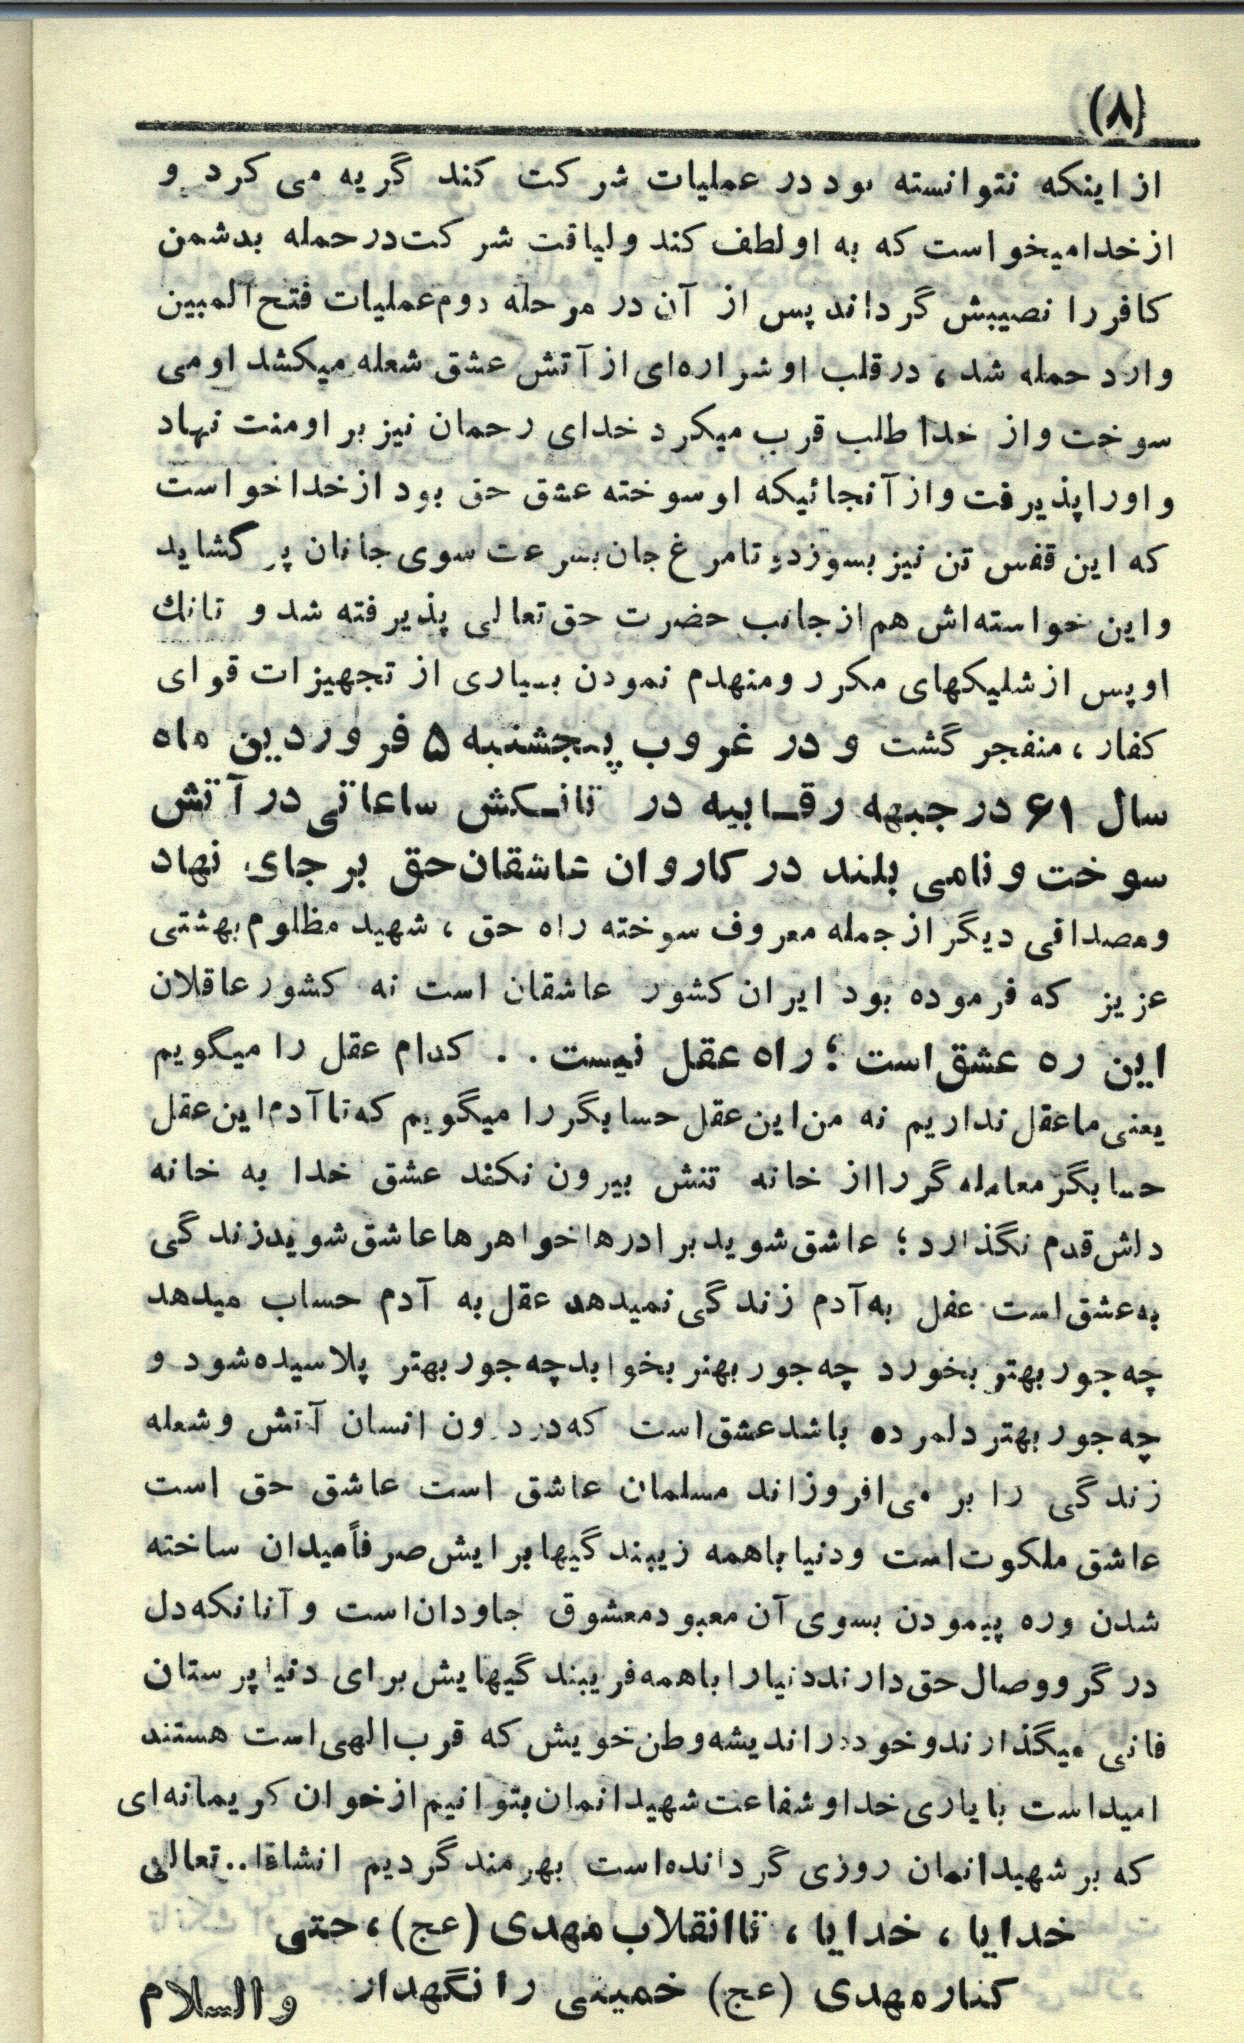 (۸)
از اینکه نتوانسته بود در عملیات شرکت کند گریه می کرد و
از خدا میخواست که به او لطف کند و لیاقت شرکت در حمله بدشمن
کافر را نصیبش گرداند پس از آن در مرحله دوم عملیات فتح المبین
وارد حمله شد ، در قلب او شراره‌ای از آتش عشق شعله میکشد او می
سوخت و از خدا طلب قرب میکرد خدای رحمان نیز بر او منت نهاد
و او را پذیرفت و از آنجائیکه او سوخته عشق حق بود از خدا خواست
که این قفس تن نیز بسوزد و تا مرغ جان بسرعت سوی جانان پر گشاید
و این خواسته‌اش هم از جانب حضرت حق تعالی پذیرفته شد و تانک
او پس از شلیکهای مکرر و منهدم نمودن بسیاری از تجهیزات قوای
کفار ، منفجر گشت و در غروب پنجشنبه ۵ فروردین ماه
سال ۶۱ در جبهه رقـابیه در تانـکش ساعاتی در آتش
سوخت و نامی بلند در کاروان عاشقان حق بر جای نهاد
و مصداقی دیگر از جمله معروف سوخته راه حق ، شهید مظلوم بهشتی
عزیز که فرموده بود ایران کشور عاشقان است نه کشور عاقلان
این ره عشق است ؛ راه عقل نیست . . کدام عقل را میگویم
یعنی ما عقل نداریم نه من این عقل حسابگر را میگویم که تا آدم این عقل
حسابگر معامله گر را از خانه تنش بیرون نکند عشق خدا به خانه
داش قدم نگذارد ؛ عاشق شوید برادرها خواهرها عاشق شوید زندگی
به عشق است عقل به آدم زندگی نمیدهد عقل به آدم حساب میدهد
چه جور بهتر بخورد چه جور بهتر بخوابد چه جور بهتر پلاسیده شود و
چه جور بهتر دلمرده باشد عشق است که در درون انسان آتش و شعله
زندگی را بر می افروزاند مسلمان عاشق است عاشق حق است
عاشق ملکوت است و دنیا با همه زیبندگیها برایش صرفاً میدان ساخته
شدن و ره پیمودن بسوی آن معبود معشوق جاودان است و آنانکه دل
در گرو وصال حق دارند دنیا را با همه فریبندگیهایش برای دنیا پرستان
فانی میگذارند و خود در اندیشه وطن خویش که قرب الهی است هستند
امید است با یاری خدا و شفاعت شهیدانمان بتوانیم از خوان کریمانه‌ای
که بر شهیدانمان روزی گردانده است بهرمند گردیم انشاءا.. تعالی
خدایا ، خدایا ، تا انقلاب مهدی (عج) ، حتی
کنار مهدی (عج) خمینی را نگهدار والسلام